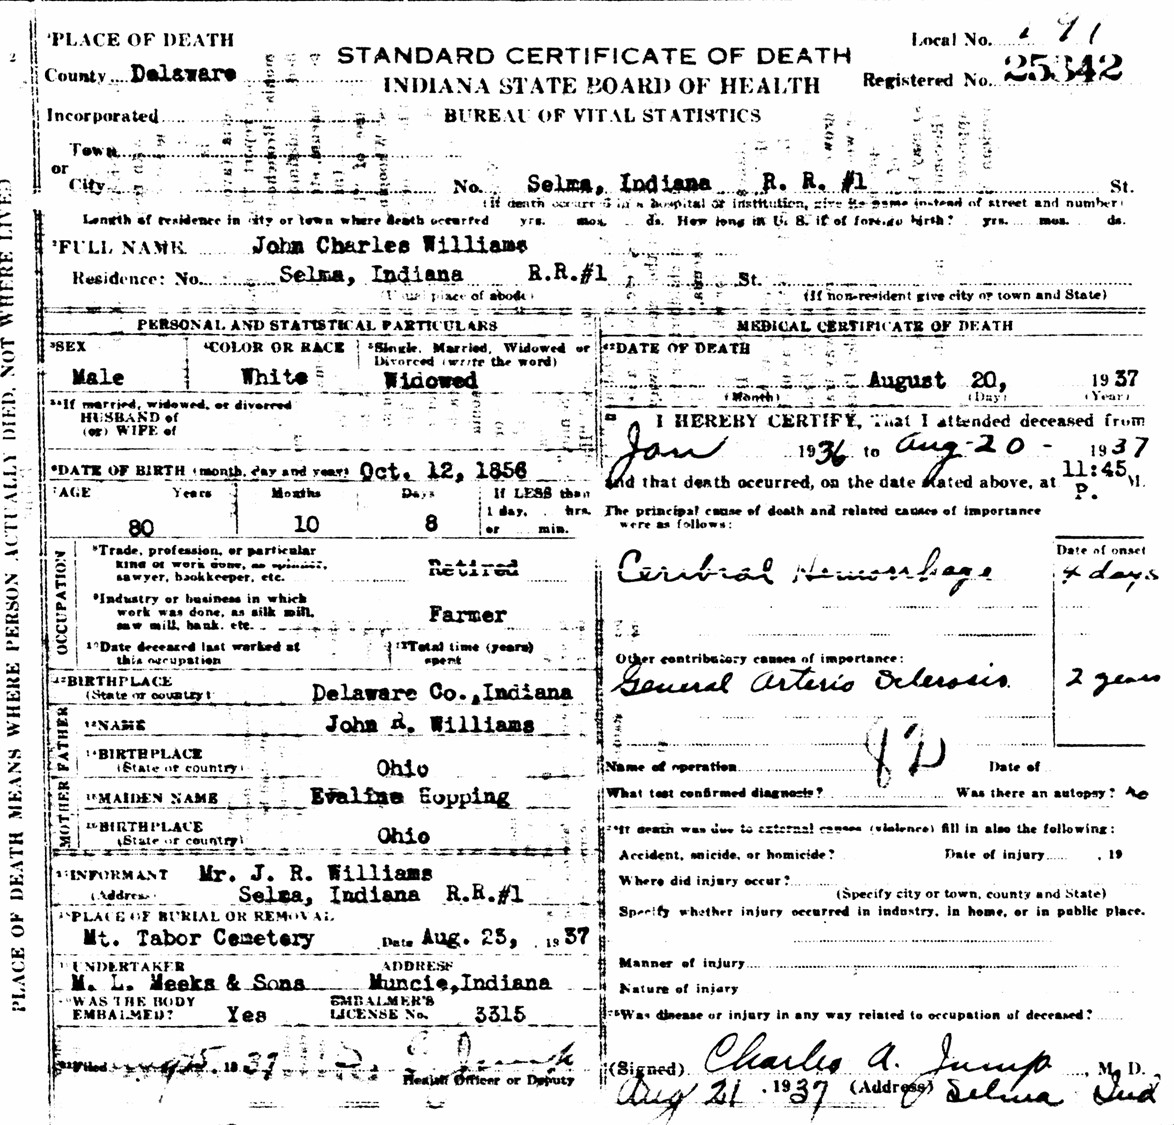 PLACE OF DEATH
STANDARD CERTIFICATE OF DEATH
Local No. 191
County Delaware
INDIANA STATE BOARD OF HEALTH
Registered No. 25342
Incorporated
BUREAU OF VITAL STATISTICS
Town
or
City No. Selma, Indiana R. R. #1 St.
(If death occurred in a hospital or institution, give its name instead of street and number)
Length of residence in city or town where death occurred yrs. mos. ds. How long in U. S. if of foreign birth? yrs. mos. ds.
FULL NAME John Charles Williams
Residence: No. Selma, Indiana R.R.#1 St.
(Usual place of abode) (If non-resident give city or town and State)
PERSONAL AND STATISTICAL PARTICULARS
SEX
Male
COLOR OR RACE
White
Single, Married, Widowed or
Divorced (write the word)
Widowed
If married, widowed, or divorced
HUSBAND of
(or) WIFE of
DATE OF BIRTH (month, day and year) Oct. 12, 1856
AGE Years Months Days If LESS than
1 day, hrs.
80 10 8 or min.
OCCUPATION
Trade, profession, or particular
kind of work done, as spinner,
sawyer, bookkeeper, etc. Retired
Industry or business in which
work was done, as silk mill,
saw mill, bank, etc. Farmer
Date deceased last worked at
this occupation
Total time (years)
spent
BIRTHPLACE
(State or country) Delaware Co., Indiana
FATHER
NAME John R. Williams
BIRTHPLACE
(State or country) Ohio
MOTHER
MAIDEN NAME Evaline Hopping
BIRTHPLACE
(State or country) Ohio
INFORMANT Mr. J. R. Williams
(Address Selma, Indiana R.R.#1
PLACE OF BURIAL OR REMOVAL
Mt. Tabor Cemetery Date Aug. 23, 1937
UNDERTAKER ADDRESS
M. L. Meeks & Sons Muncie, Indiana
WAS THE BODY
EMBALMED? Yes
EMBALMER'S
LICENSE No. 3315
Filed 1937
Health Officer or Deputy
MEDICAL CERTIFICATE OF DEATH
DATE OF DEATH
August 20, 1937
(Month) (Day) (Year)
I HEREBY CERTIFY, That I attended deceased from
Jan 1936 to Aug-20- 1937
and that death occurred, on the date stated above, at 11:45 P. M.
The principal cause of death and related causes of importance
were as follows:
Date of onset
Ceribral Hemorrhage 4 days
Other contributory causes of importance:
General Arterio Sclerosis 2 years
Name of operation Date of
What test confirmed diagnosis? Was there an autopsy? no
If death was due to external causes (violence) fill in also the following:
Accident, suicide, or homicide? Date of injury , 19
Where did injury occur?
(Specify city or town, county and State)
Specify whether injury occurred in industry, in home, or in public place.
Manner of injury
Nature of injury
Was disease or injury in any way related to occupation of deceased?
(Signed) Charles A. Jump, M. D.
Aug 21, 1937 (Address) Selma Ind
PLACE OF DEATH MEANS WHERE PERSON ACTUALLY DIED, NOT WHERE LIVED